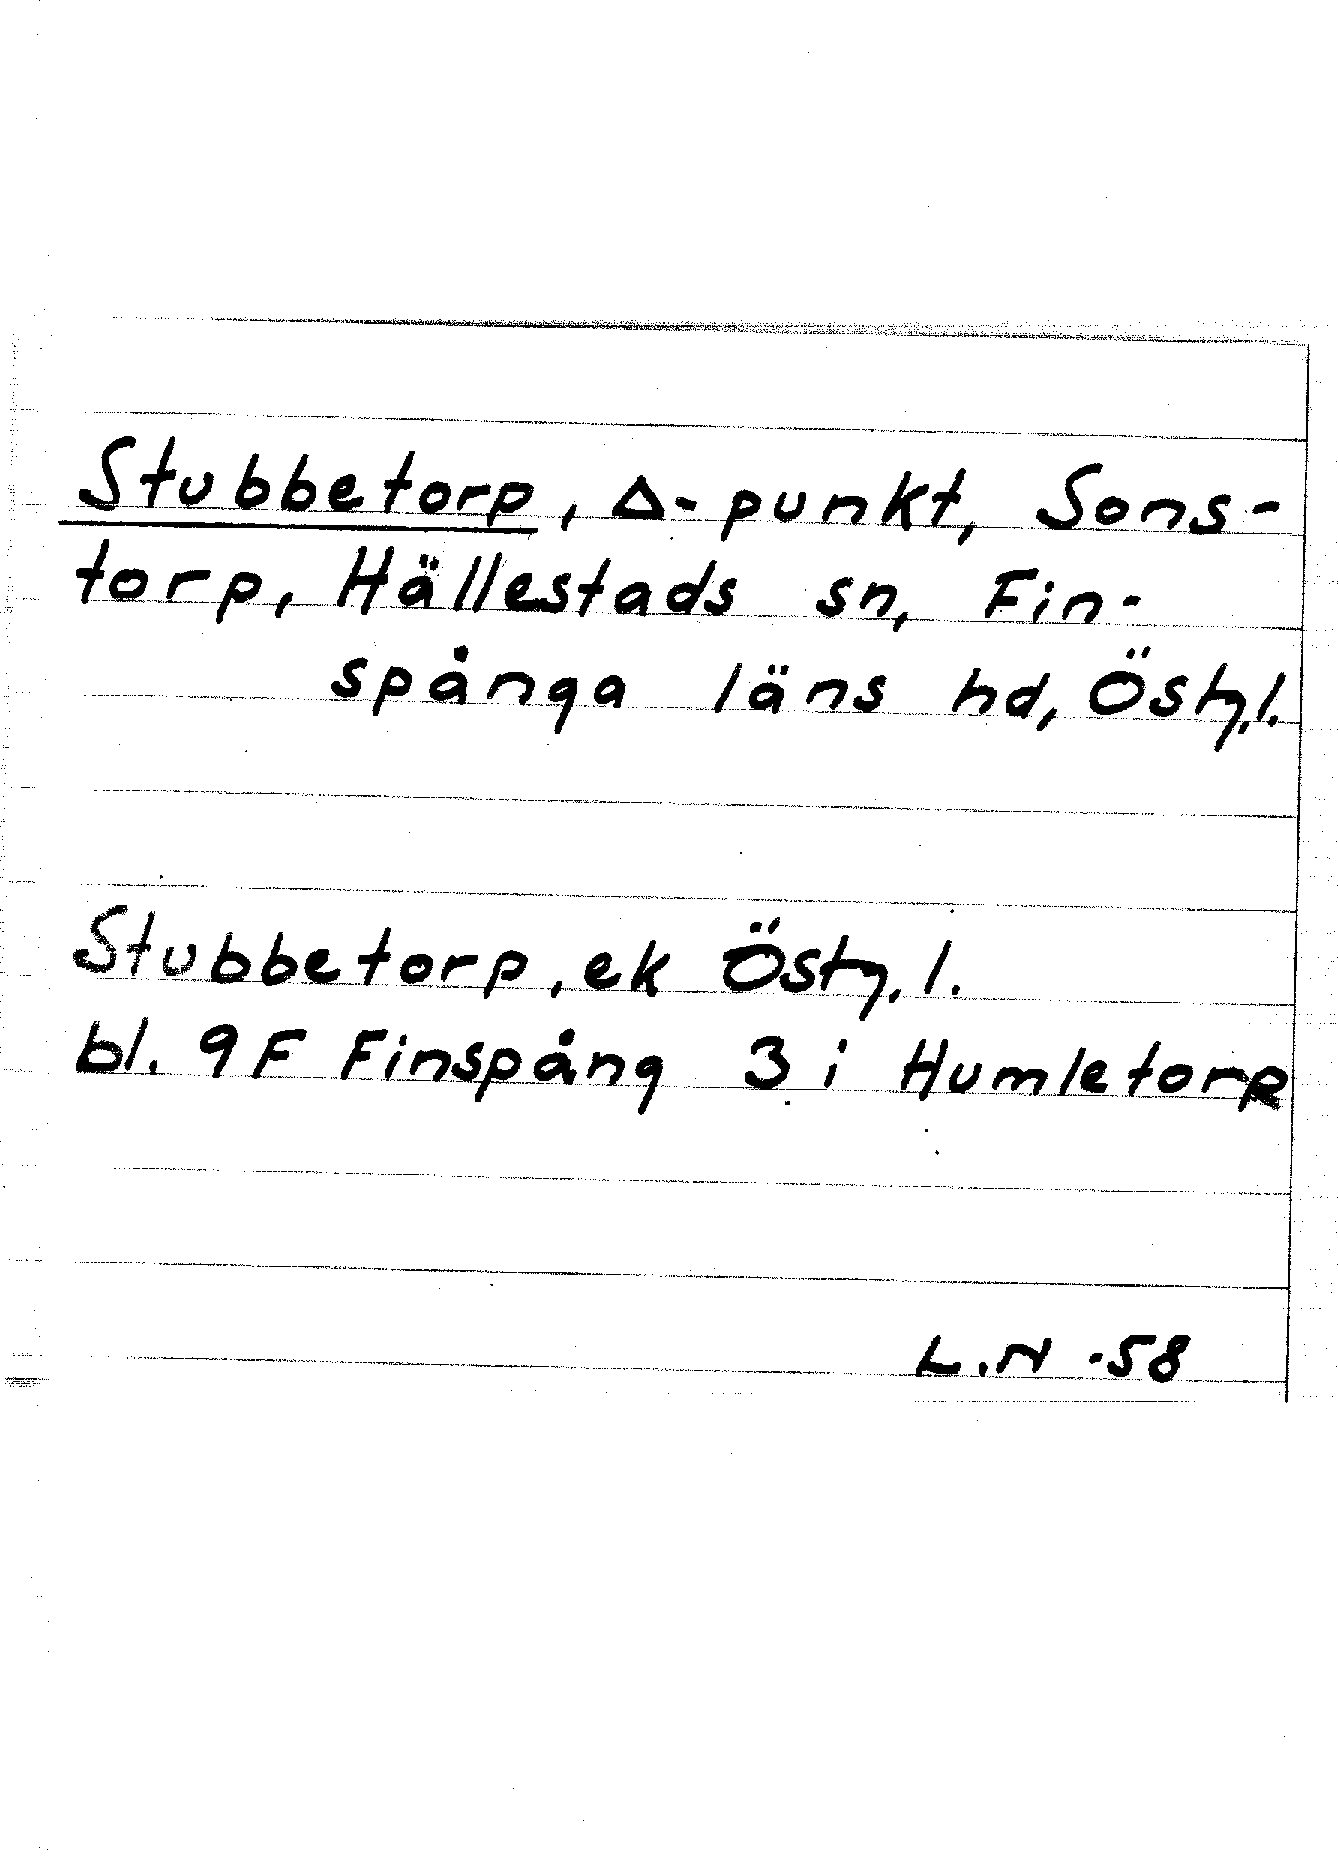 Stubbetorp, Δ-punkt, Sons-
torp, Hällestads sn, Fin-
spånga läns hd, Östg.l.
Stubbetorp, ek Östg.l.
bl. 9F Finspång 3 i Humletorp
L.N -58